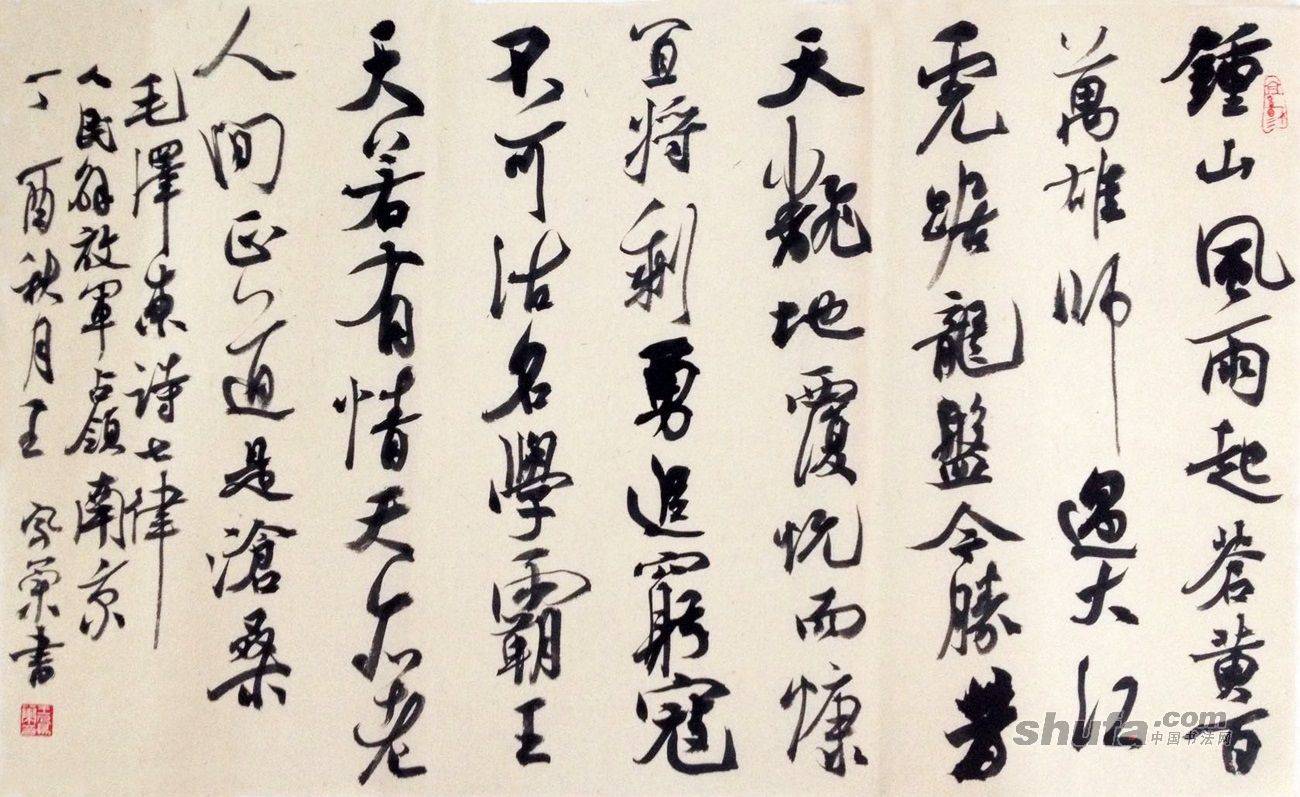 鍾山風雨起蒼黄百
萬雄師過大江
虎踞龍盤今勝昔
天翻地覆慨而慷
宜將剩勇追窮寇
不可沽名學霸王
天若有情天亦老
人間正道是滄桑
毛澤東詩七律
人民解放軍占領南京
丁酉秋月王 榮書
shufa.com
中国书法网